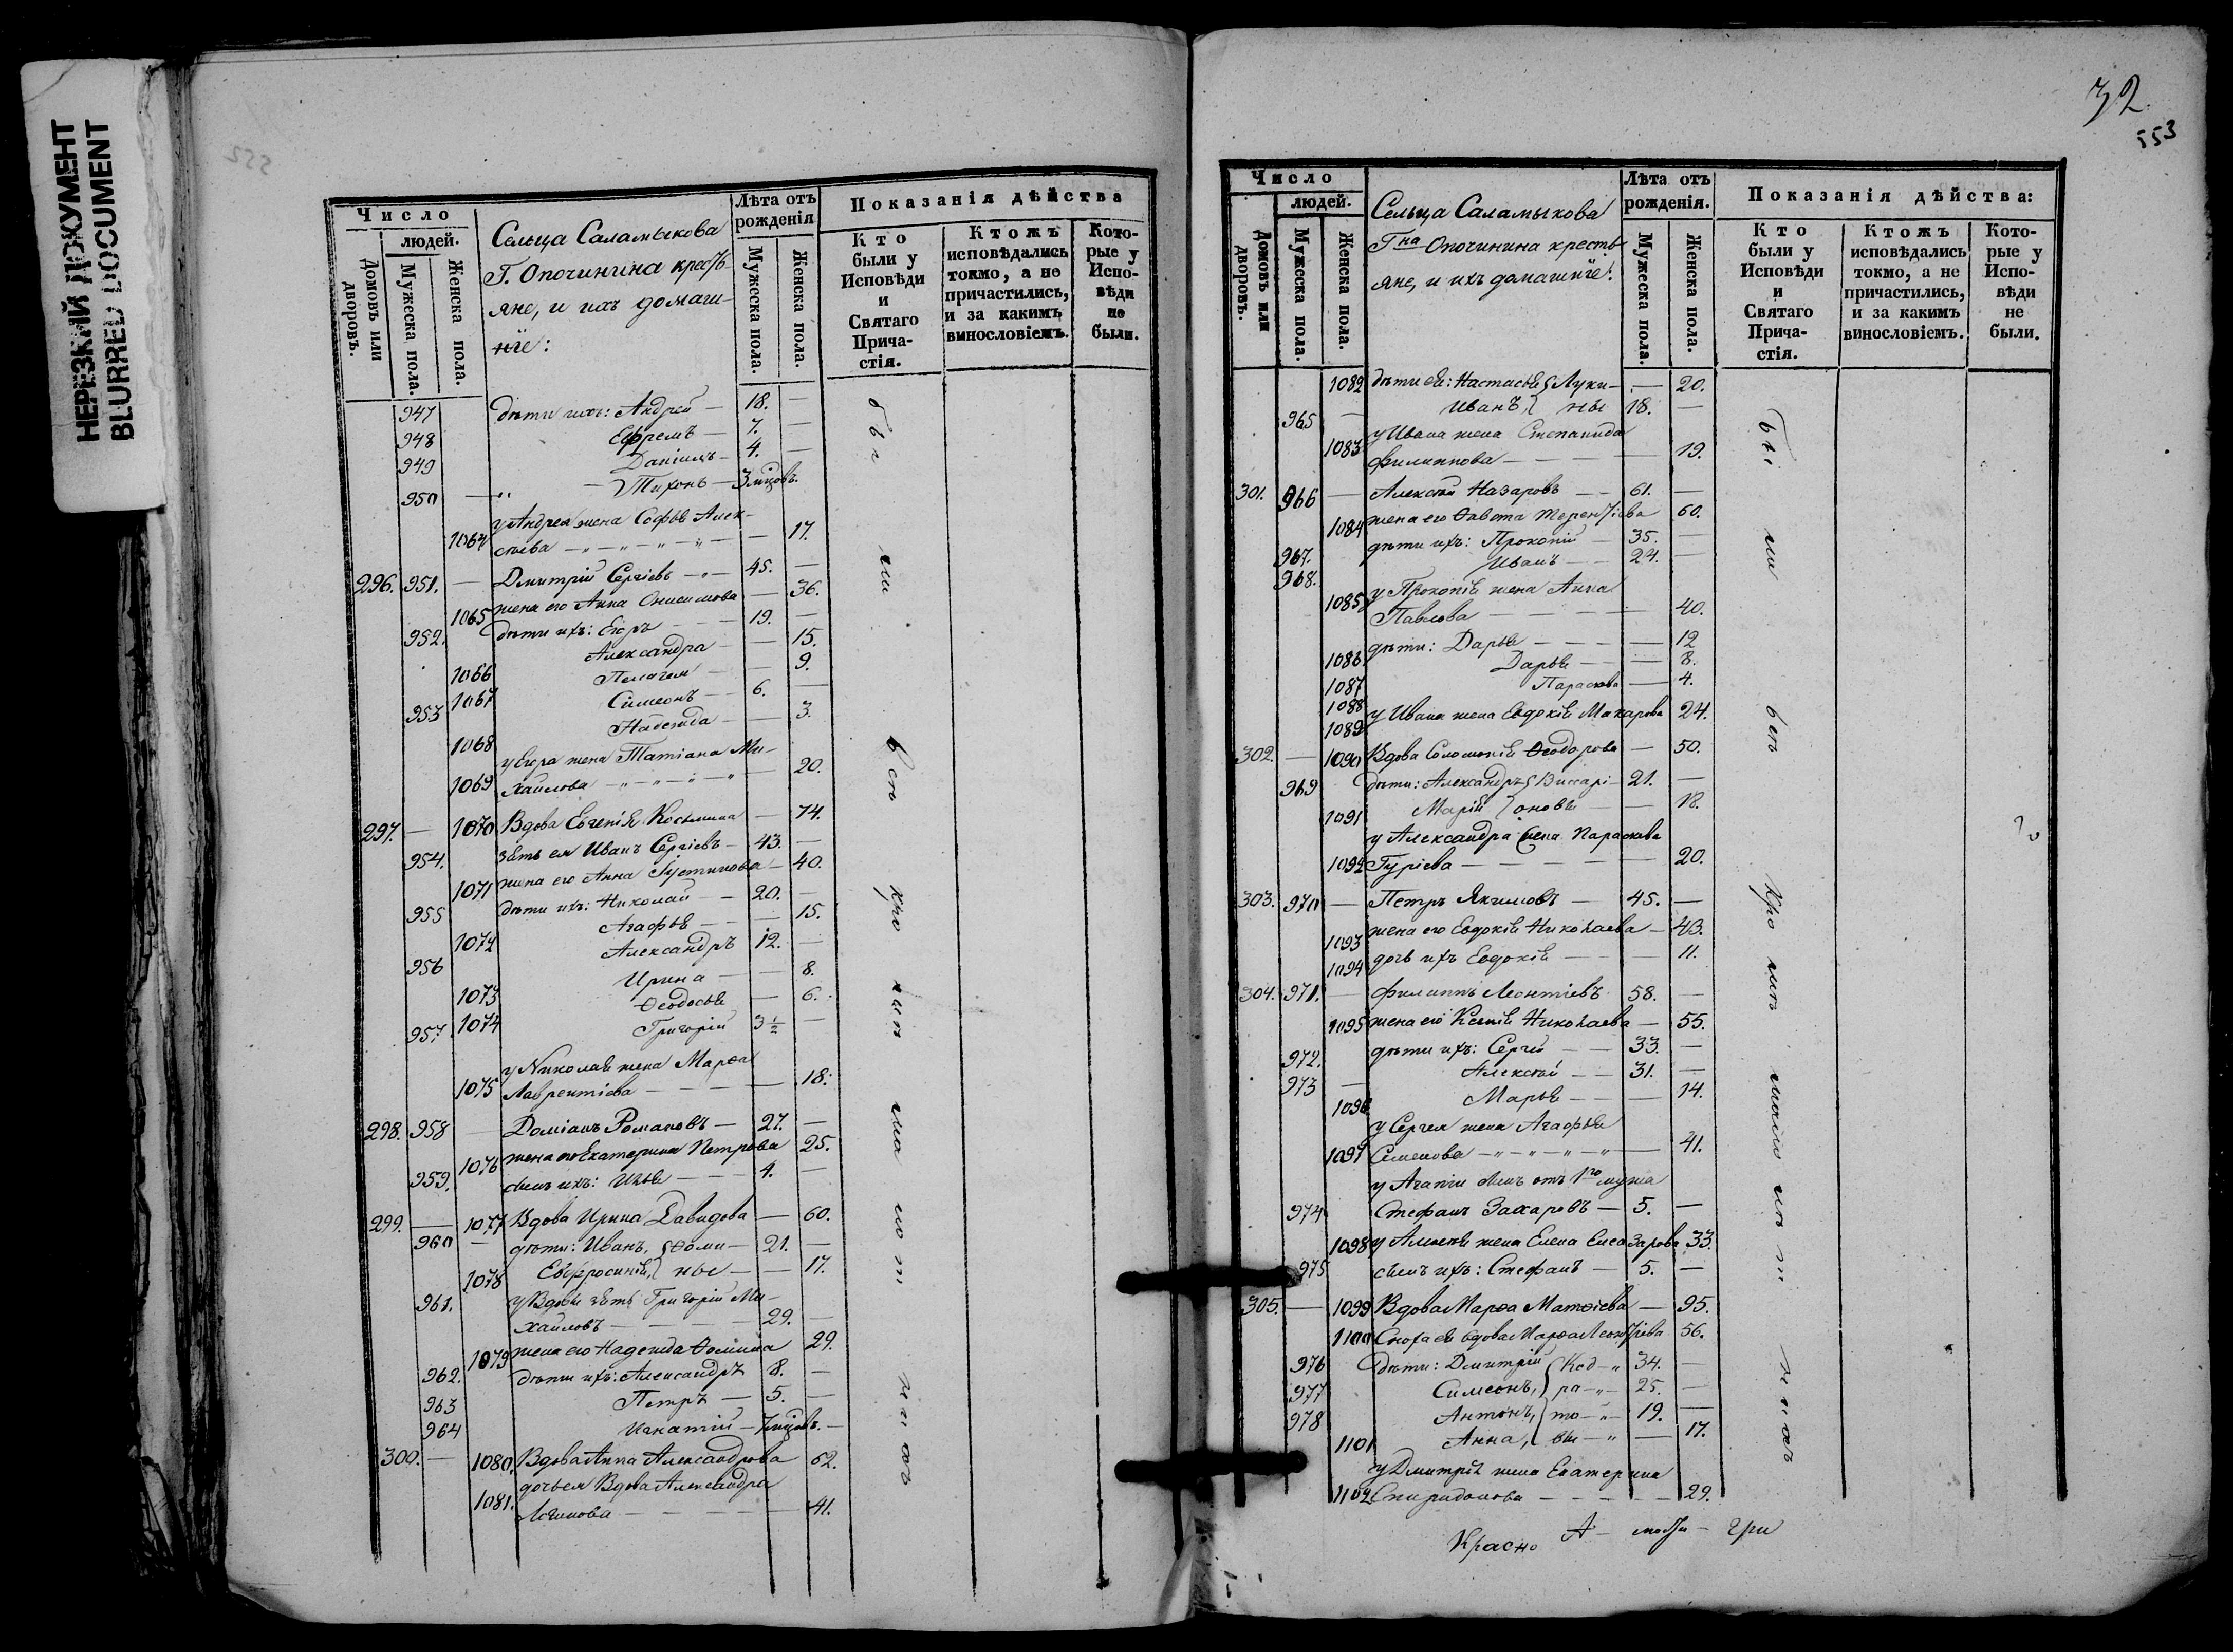 НЕРЕЗКИЙ ДОКУМЕНТ
BLURRED DOCUMENT
Число
людей.
Домовъ или дворовъ.
Мужеска пола.
Женска пола.
Сельца Саламыкова
Г. Опочинина кресть-
яне, и ихъ домаш-
ніе:
Лѣта отъ рожденія
Мужеска пола.
Женска пола.
Показанія дѣйства
Кто были у Исповѣди и Святаго Прича-стія.
Ктожъ исповѣдались токмо, а не причастились, и за какимъ винословіемъ.
Кото-рые у Испо-вѣди не были.
947 дѣти ихъ: Андрей — 18. —
948 Ефремъ — 7. —
949 Даніилъ — 4. —
950 — Тихонъ — 3 мѣцовъ.
у Андрея жена Софья Алек-
1064 сѣева — 17.
296. 951. — Дмитрій Сергіевъ — 45. —
1065 жена его Анна Онисимова — 36.
952. дѣти ихъ: Егоръ — 19. —
Александра — 15.
1066 Пелагея — 9.
1067
953 Симеонъ — 6. —
1068 Надежда — 3.
у Егора жена Татіана Ми-
1069 хайлова — 20.
297. — 1070 Вдова Евгенія Косьмина — 74.
954. зять ея Иванъ Сергіевъ — 43. —
1071 жена его Анна Іустинова — 40.
955 дѣти ихъ: Николай — 20. —
1072 Агафья — 15.
956 Александръ 12. —
1073 Ирина — 8.
1074 Ѳеодосья — 6.
957. Григорій 3½ —
у Николая жена Марѳа
1075 Лаврентіева — 18.
298. 958 — Доміанъ Романовъ — 27. —
1076 жена его Екатерина Петрова 25.
959. сынъ ихъ: Илья — 4. —
299. — 1077 Вдова Ирина Давидова — 60.
960 — дѣти: Иванъ, Ѳоми- 21. —
1078 Евфросинія, ны — 17.
961. у Вдовы зять Григорій Ми-
хайловъ — 29. —
1079 жена его Надежда Ѳомина 29.
962. дѣти ихъ: Александръ 8. —
963 Петръ — 5. —
964 Игнатій — 7 мѣцовъ. —
300. — 1080. Вдова Анна Александрова 62.
дочь ея Вдова Александра
1081. Логинова — 41.
32
553
Число
людей.
Домовъ или дворовъ.
Мужеска пола.
Женска пола.
Сельца Саламыкова
Гна Опочинина кресть-
яне, и ихъ домашніе:
Лѣта отъ рожденія.
Мужеска пола.
Женска пола.
Показанія дѣйства:
Кто были у Исповѣди и Святаго Прича-стія.
Ктожъ исповѣдались токмо, а не причастились, и за какимъ винословіемъ.
Кото-рые у Испо-вѣди не были.
1082 дѣти ея: Настасья Луки- — 20.
965 — Иванъ, ны 18. —
у Ивана жена Степанида
1083 Филиппова — 19.
301. 966 — Алексѣй Назаровъ — 61. —
1084 жена его Ѳавста Терентіева 60.
967. дѣти ихъ: Прокопій — 35. —
968. Иванъ — 24. —
1085 у Прокопія жена Анна
Павлова — 40.
1086 дѣти: Дарья — 12
1087 Дарья — 8.
1088 Параскева — 4.
1089 у Ивана жена Евдокія Макарова 24.
302. — 1090 Вдова Соломонія Ѳеодорова — 50.
969 дѣти: Александръ Виссарі- 21. —
1091 Марія оновы — 18.
у Александра жена Параскева
1092 Гуріева — 20.
303. 970 — Петръ Якимовъ — 45. —
1093 жена его Евдокія Николаева — 43.
1094 дочь ихъ Евдокія — 11.
304. 971. — Филиппъ Леонтіевъ 58. —
1095 жена его Ксенія Николаева — 55.
972. дѣти ихъ: Сергій — 33. —
973 — Алексѣй — 31. —
1096 Марья — 14.
у Сергея жена Агафья
1097 Семенова — 41.
у Агапіи сынъ отъ 1го мужа
974 Стефанъ Захаровъ — 5. —
1098 у Алексѣя жена Елена Елеазарова 33.
975 сынъ ихъ: Стефанъ — 5. —
305. — 1099 Вдова Марѳа Матѳіева — 95.
1100 Сноха ея вдова Марѳа Леонтіева 56.
976 дѣти: Дмитрій Код- 34. —
977 Симеонъ, ра- 25. —
978 Антонъ, то- 19. —
1101 Анна, вы — 17.
у Дмитрія жена Екатерина
1102 Спиридонова — 29.